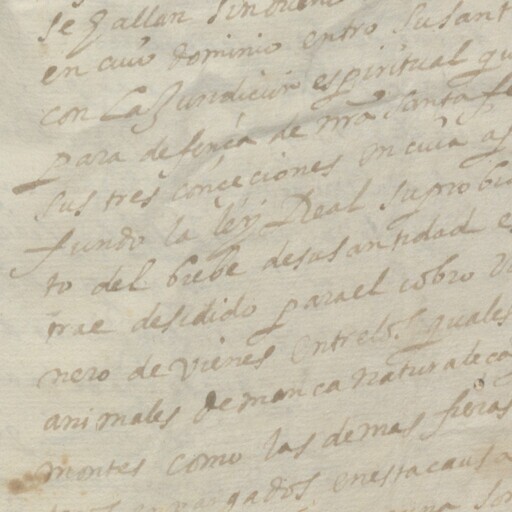 se hallan sin dueño
en cuio dominio entro su sant
con la Juridicion espiritual qu
para defença de nrâ santa fe
sus tres conçeciones en cuia
fundo la ley Real su probi
to del brebe de su santidad e
trae desidido para el cobro
nero de vienes entre los quales
animales de mança naturaleça
montes como las demas fieras
en esta causa